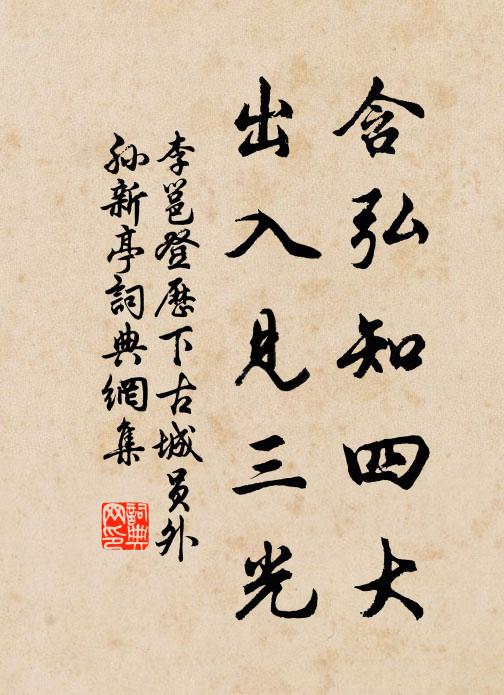 含弘知四大
出入見三光
李邕登歷下古城員外
孙新亭詞典網集
詞典网印